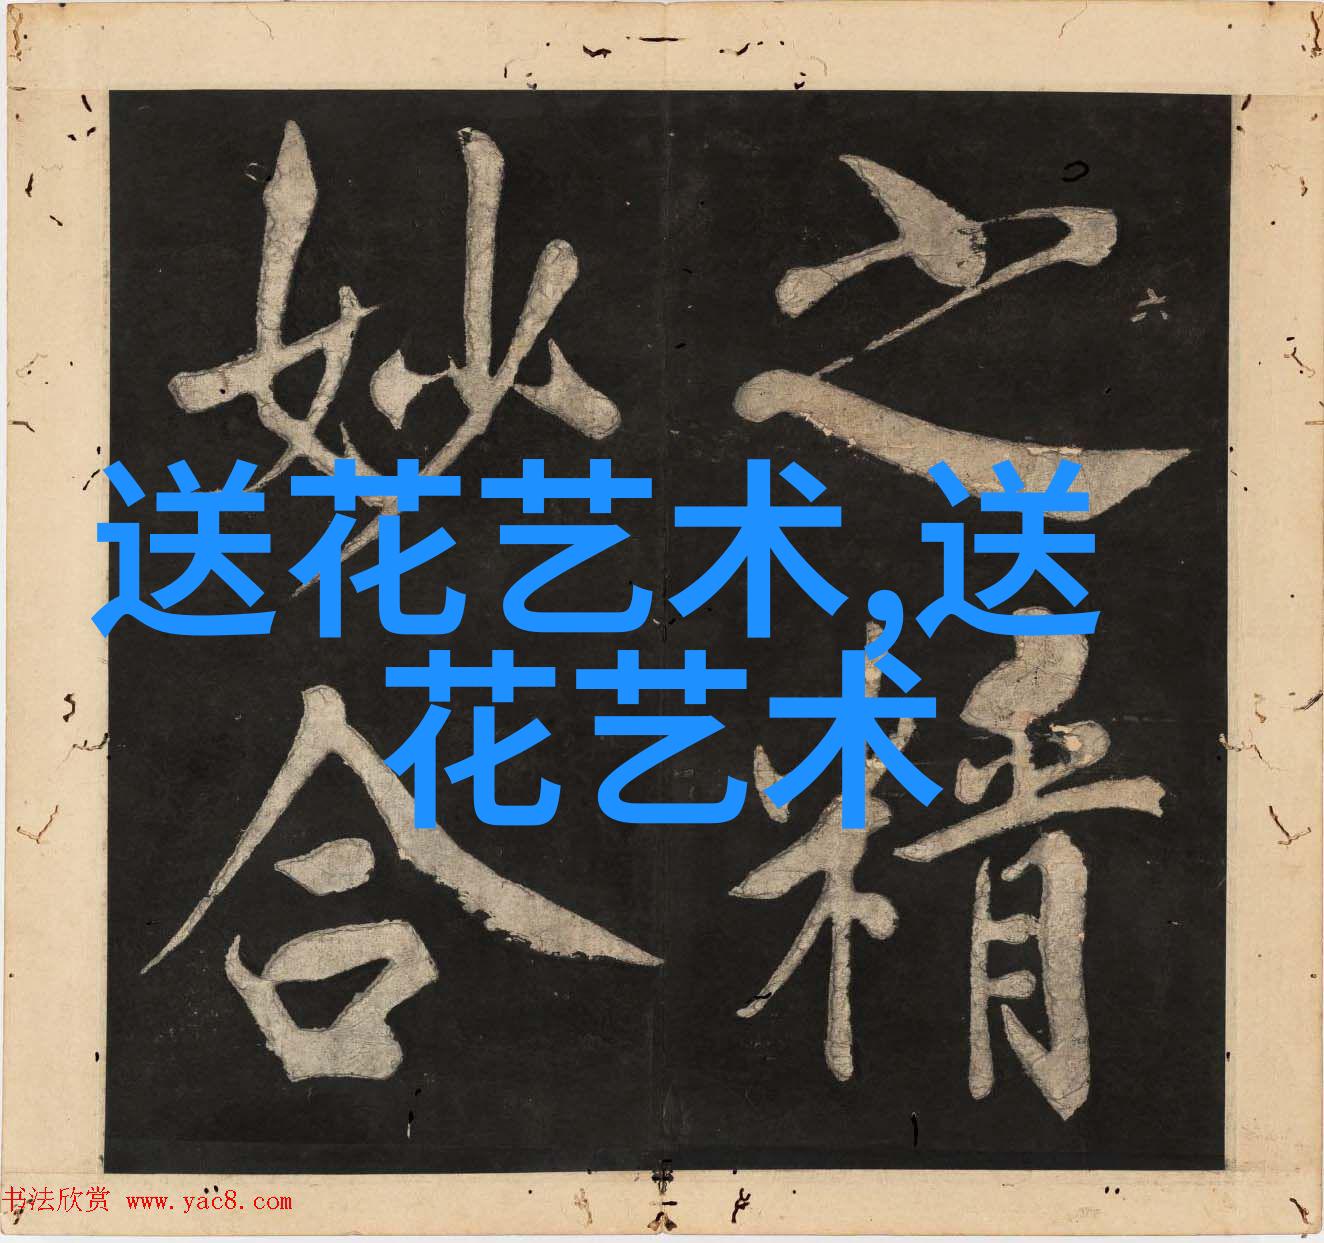 之精
妙合
六
送花艺术,送
花艺术
书法欣赏 www.yac8.com